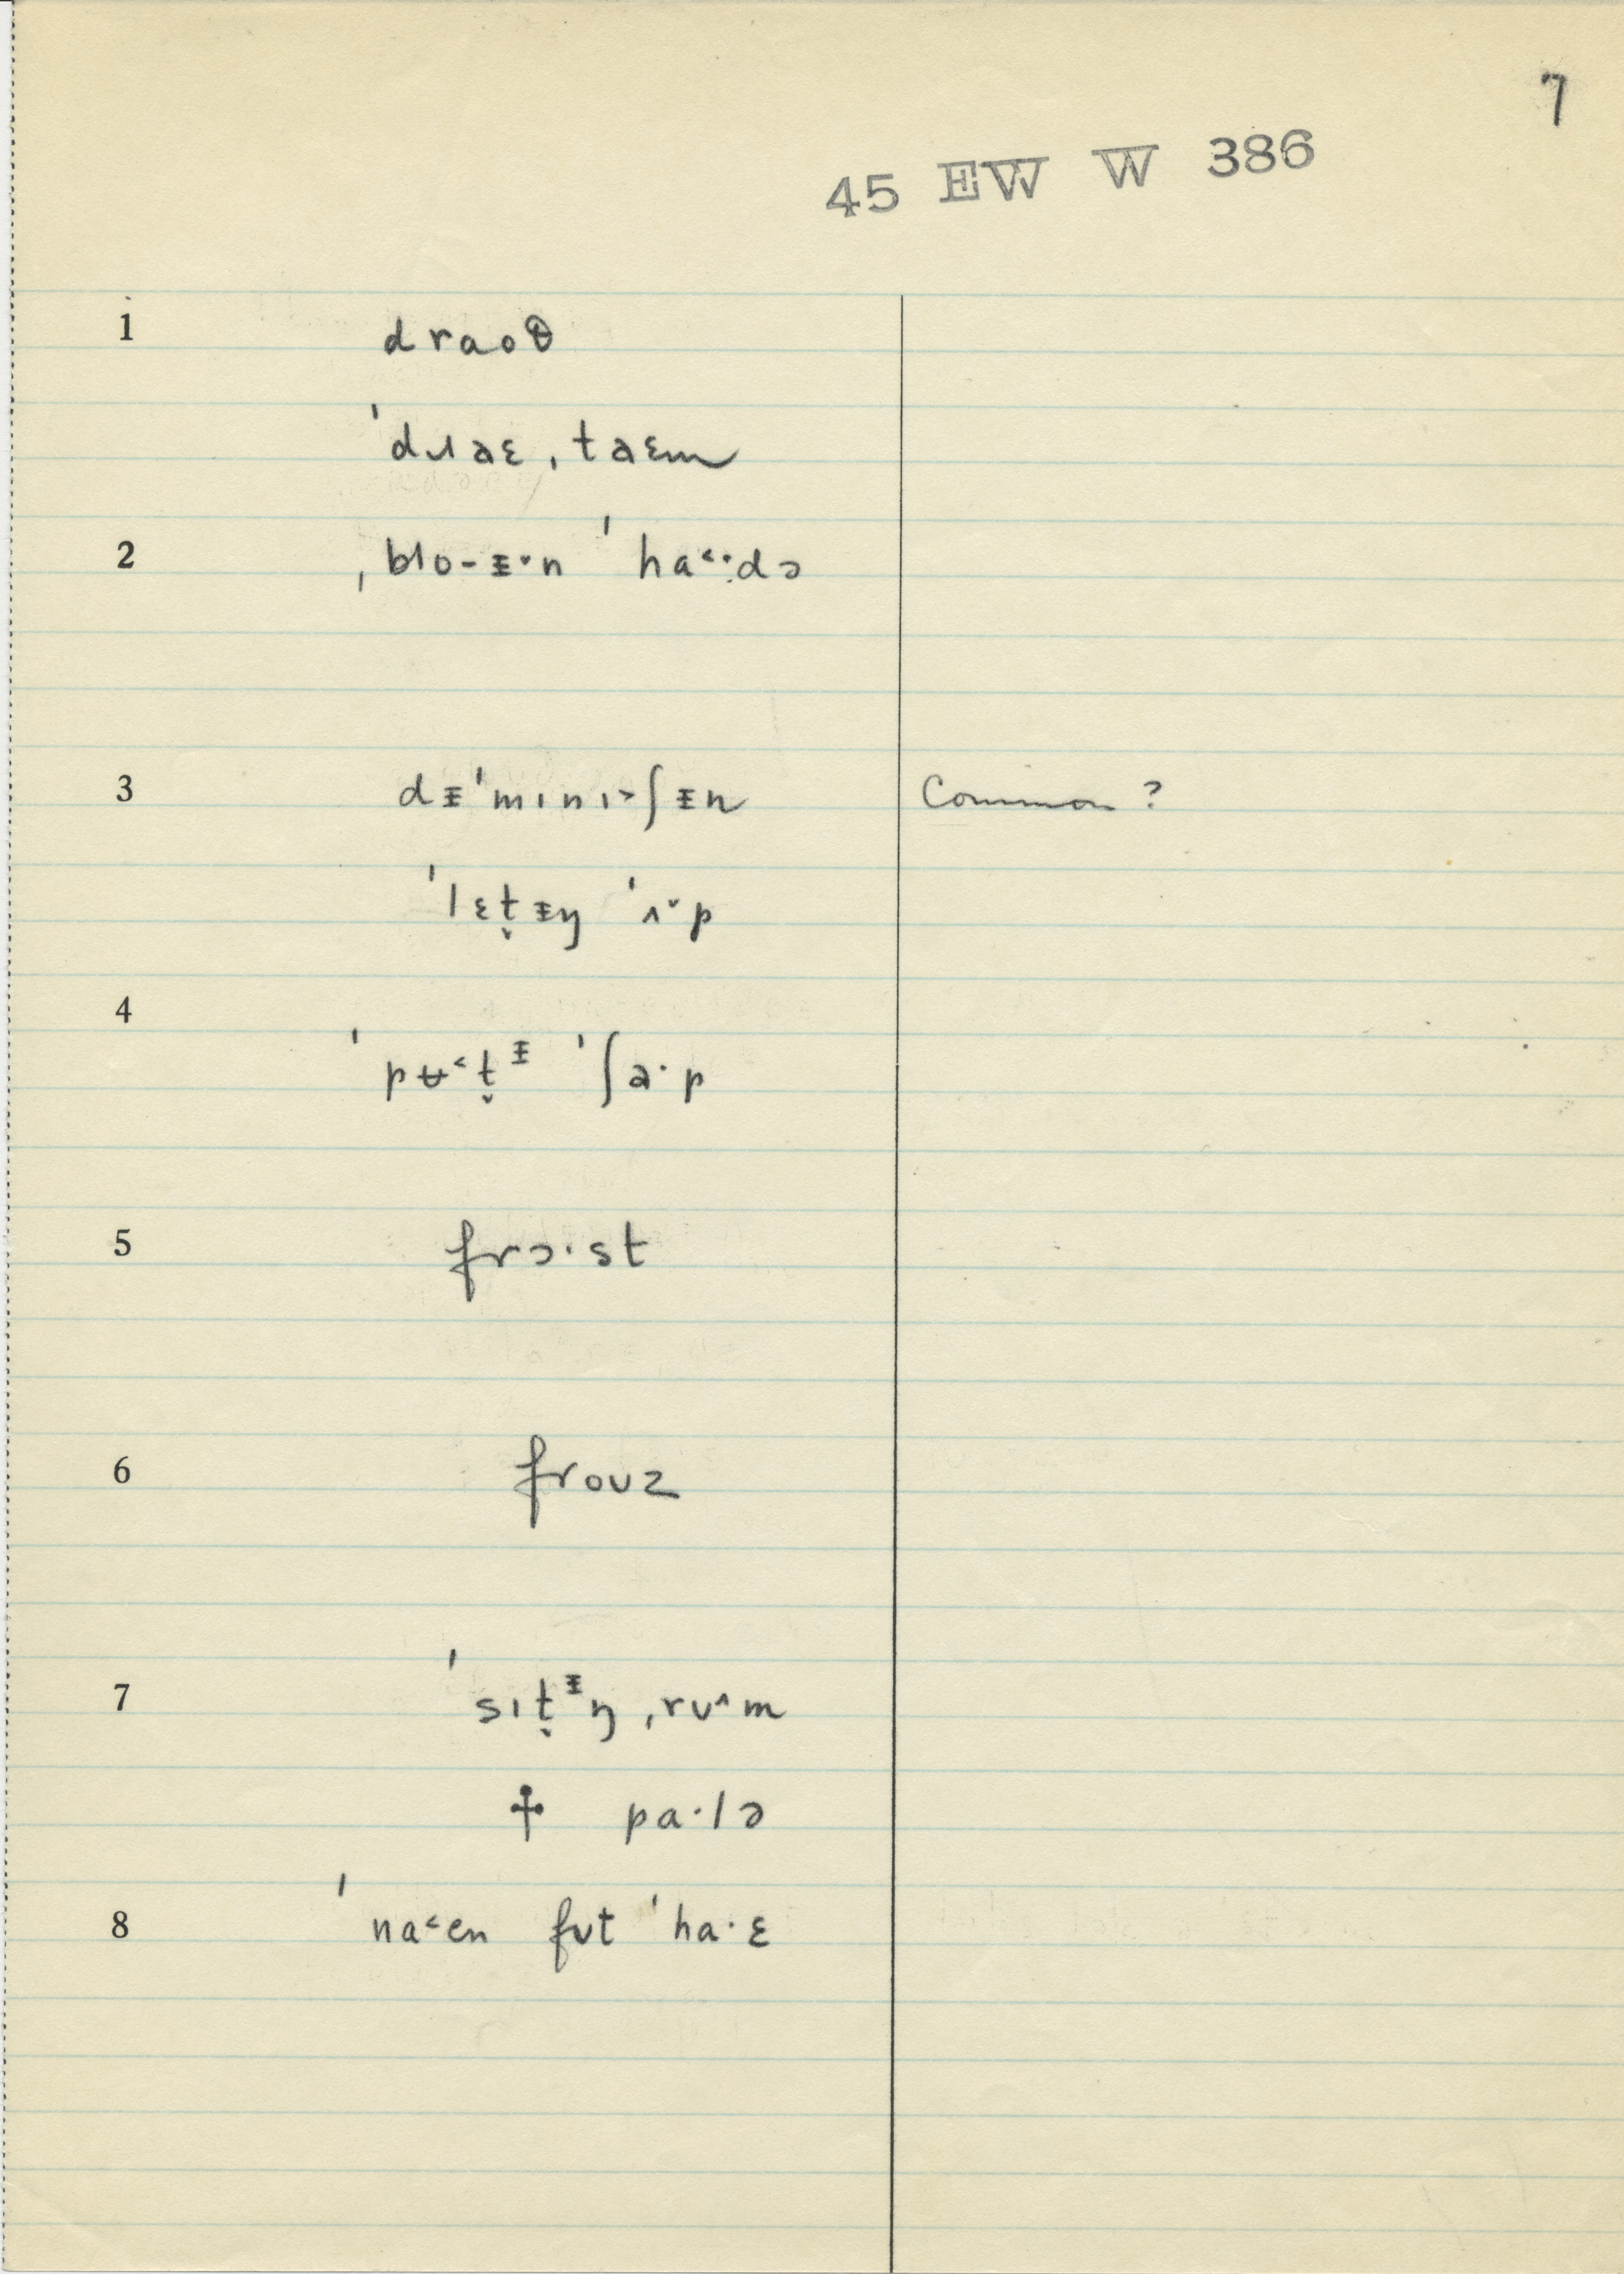 7
45 EW W 386
1 draoθ
ˈdɹaɛ ˌtaɛm
2 ˌblo-ᵻ˅n ˈha˂·:də
3 dᵻˈmɪnɪ˃ʃᵻn Common ?
ˈlɛt̬ᵻŋ ˈʌ˅p
4
ˈpʉ˂t̬ᵻ ˈʃa·p
5 frɔ·st
6 froʊz
7 ˈsɪt̬ᵻŋ ˌrʊ˄m
☨ pa·lə
8 ˈna˂en fʊt ˈha·ɛ